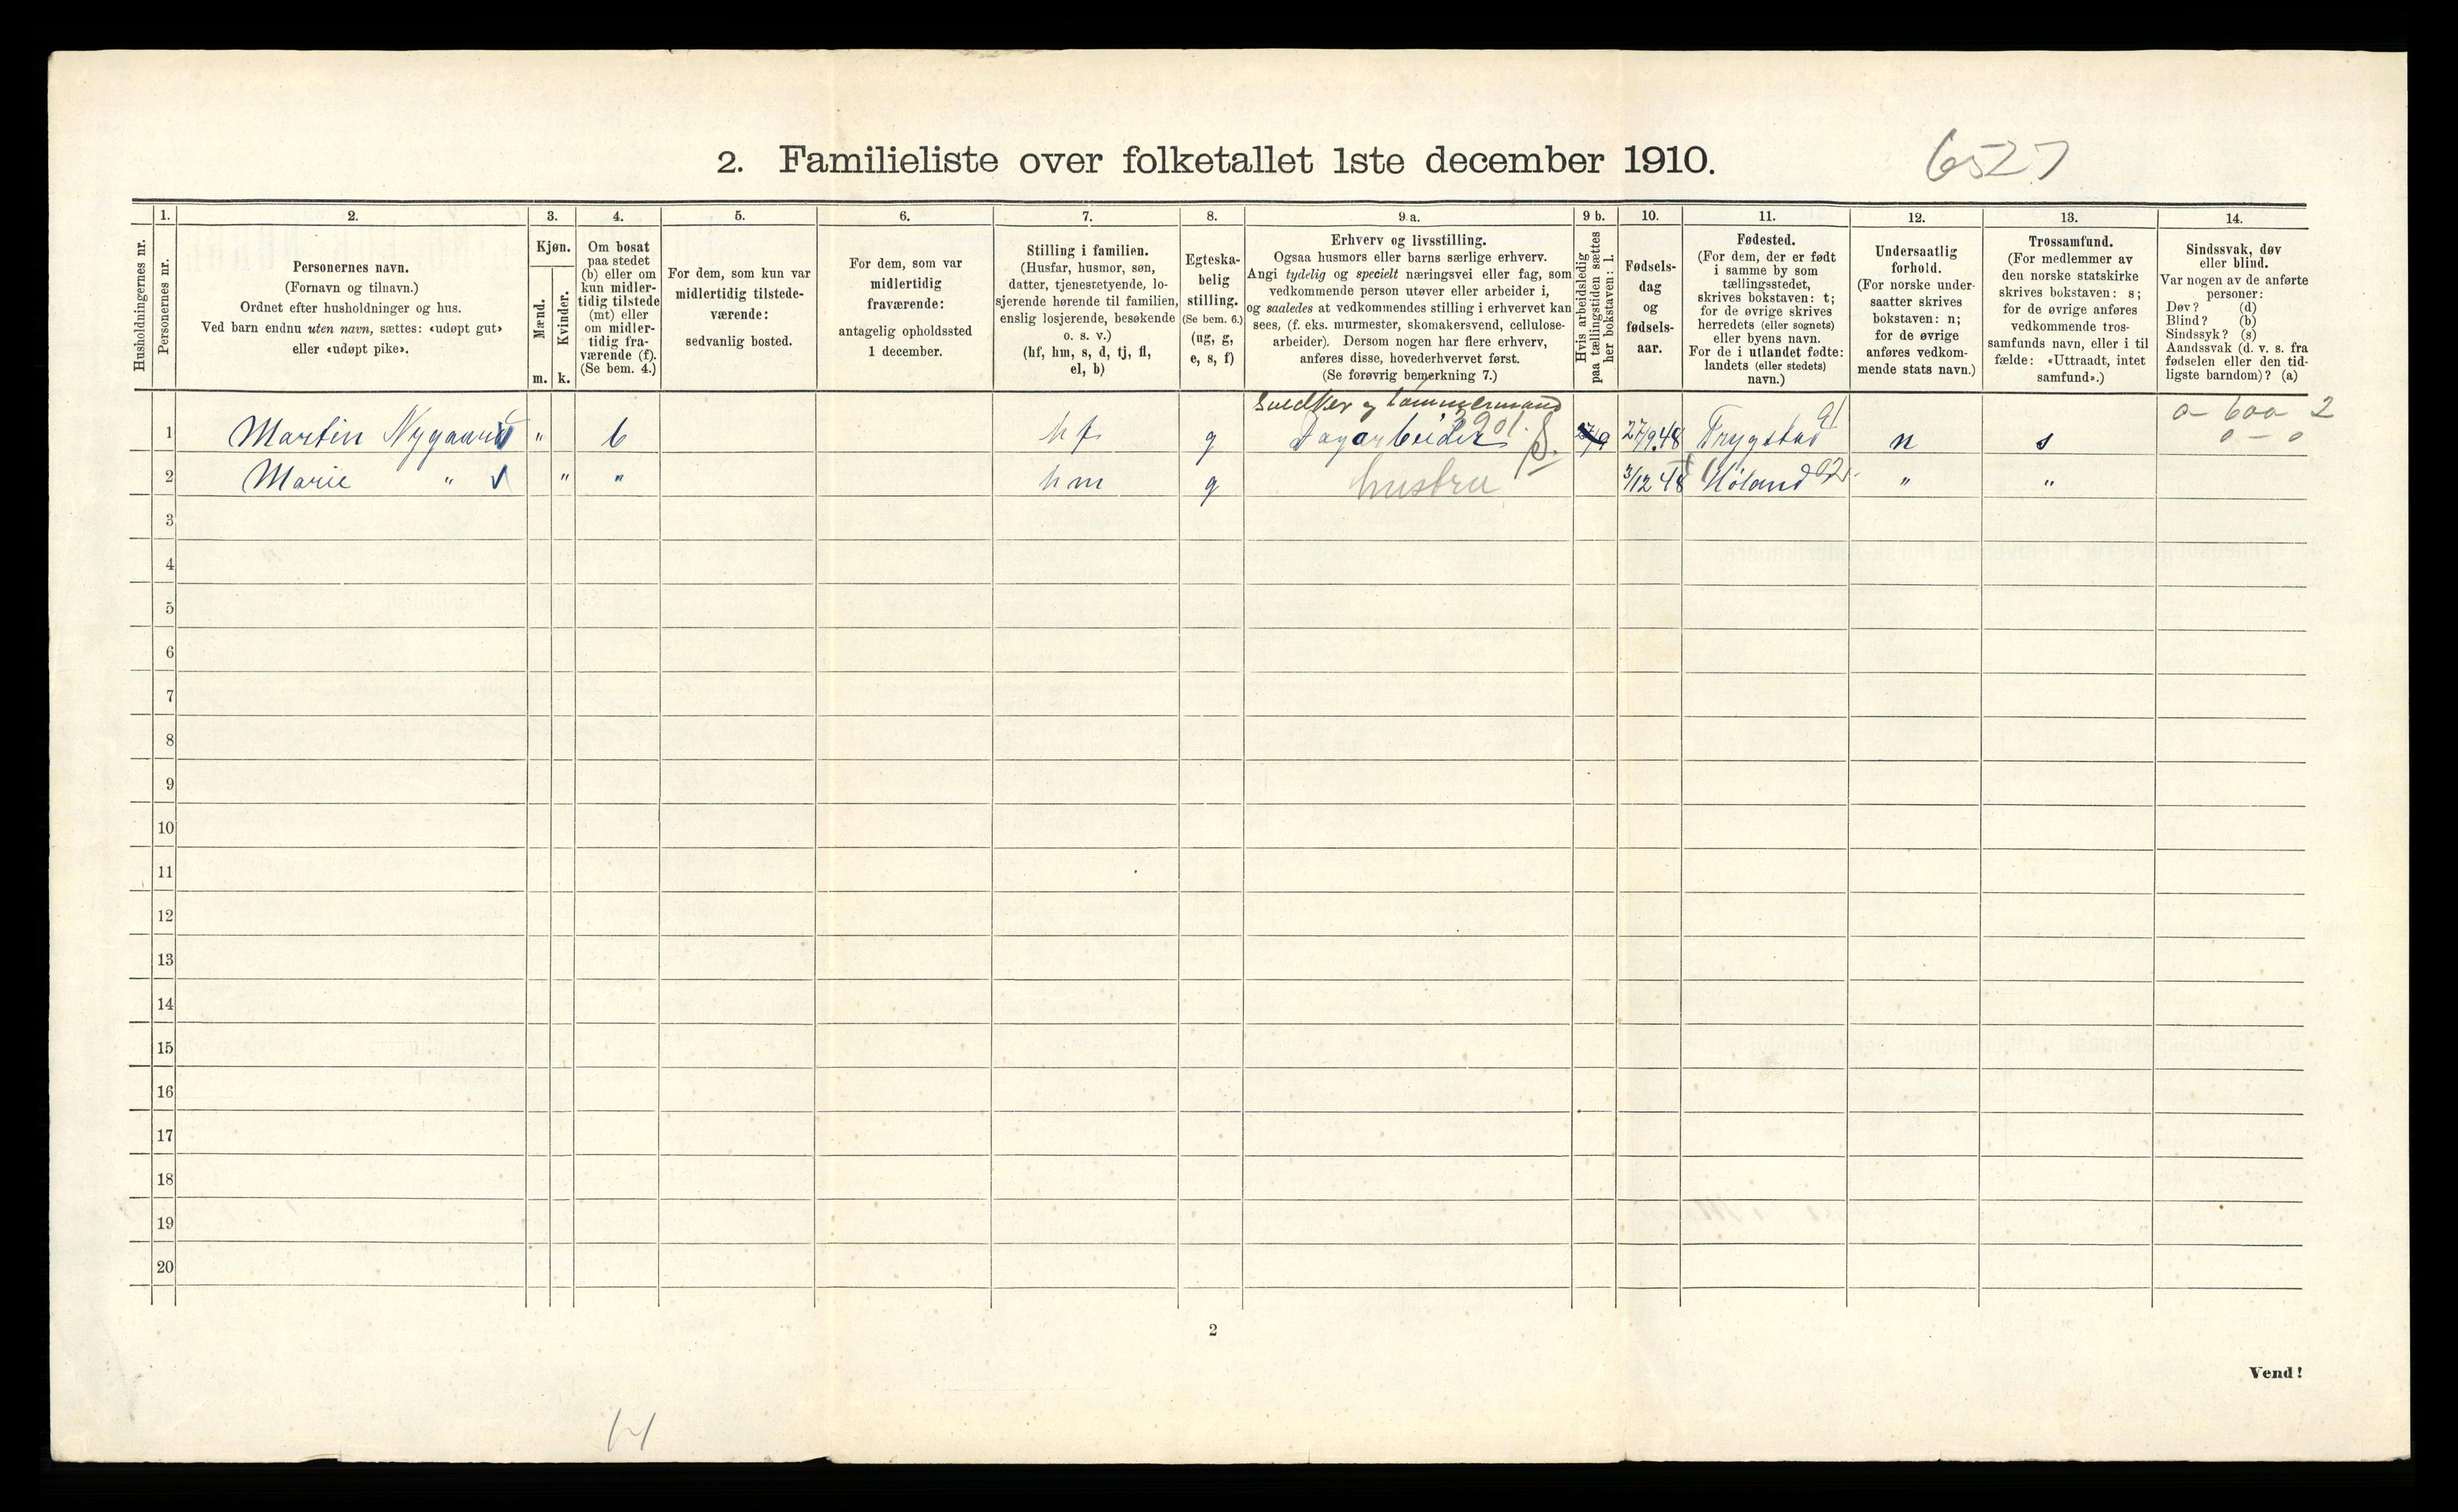 2. Familieliste over folketallet 1ste december 1910.
6527
Husholdningernes nr.
1.
Personernes nr.
2.
Personernes navn.
(Fornavn og tilnavn.)
Ordnet efter husholdninger og hus.
Ved barn endnu uten navn, sættes: «udøpt gut»
eller «udøpt pike».
3.
Kjøn.
Mænd.
Kvinder.
m. k.
4.
Om bosat
paa stedet
(b) eller om
kun midler-
tidig tilstede
(mt) eller
om midler-
tidig fra-
værende (f).
(Se bem. 4.)
5.
For dem, som kun var
midlertidig tilstede-
værende:
sedvanlig bosted.
6.
For dem, som var
midlertidig
fraværende:
antagelig opholdssted
1 december.
7.
Stilling i familien.
(Husfar, husmor, søn,
datter, tjenestetyende, lo-
sjerende hørende til familien,
enslig losjerende, besøkende
o. s. v.)
(hf, hm, s, d, tj, fl,
el, b)
8.
Egteska-
belig
stilling.
(Se bem. 6.)
(ug, g,
e, s, f)
9 a.
Erhverv og livsstilling.
Ogsaa husmors eller barns særlige erhverv.
Angi tydelig og specielt næringsvei eller fag, som
vedkommende person utøver eller arbeider i,
og saaledes at vedkommendes stilling i erhvervet kan
sees, (f. eks. murmester, skomakersvend, cellulose-
arbeider). Dersom nogen har flere erhverv,
anføres disse, hovederhvervet først.
(Se forøvrig bemerkning 7.)
9 b.
Hvis arbeidsledig
paa tællingstiden sættes
her bokstaven: l.
10.
Fødsels-
dag
og
fødsels-
aar.
11.
Fødested.
(For dem, der er født
i samme by som
tællingsstedet,
skrives bokstaven: t;
for de øvrige skrives
herredets (eller sognets)
eller byens navn.
For de i utlandet fødte:
landets (eller stedets)
navn.)
12.
Undersaatlig
forhold.
(For norske under-
saatter skrives
bokstaven: n;
for de øvrige
anføres vedkom-
mende stats navn.)
13.
Trossamfund.
(For medlemmer av
den norske statskirke
skrives bokstaven: s;
for de øvrige anføres
vedkommende tros-
samfunds navn, eller i til
fælde: «Uttraadt, intet
samfund».)
14.
Sindssvak, døv
eller blind.
Var nogen av de anførte
personer:
Døv? (d)
Blind? (b)
Sindssyk? (s)
Aandssvak (d. v. s. fra
fødselen eller den tid-
ligste barndom)? (a)
Snedker og tømmermand
0 - 600 - 2
0 - 0
1 Martin Nygaard " b hf g Dagarbeider 3901. 27/9.48 Trygstad 91 n s
2 Marie " " " hm g hustru 3/12 48 Høland 92 " "
3
4
5
6
7
8
9
10
11
12
13
14
15
16
17
18
19
20
2
Vend!